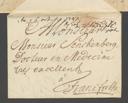 Monsieur
Monsieur Senckenberg
Docteur en Medecine
tres excellent
à
Francfort